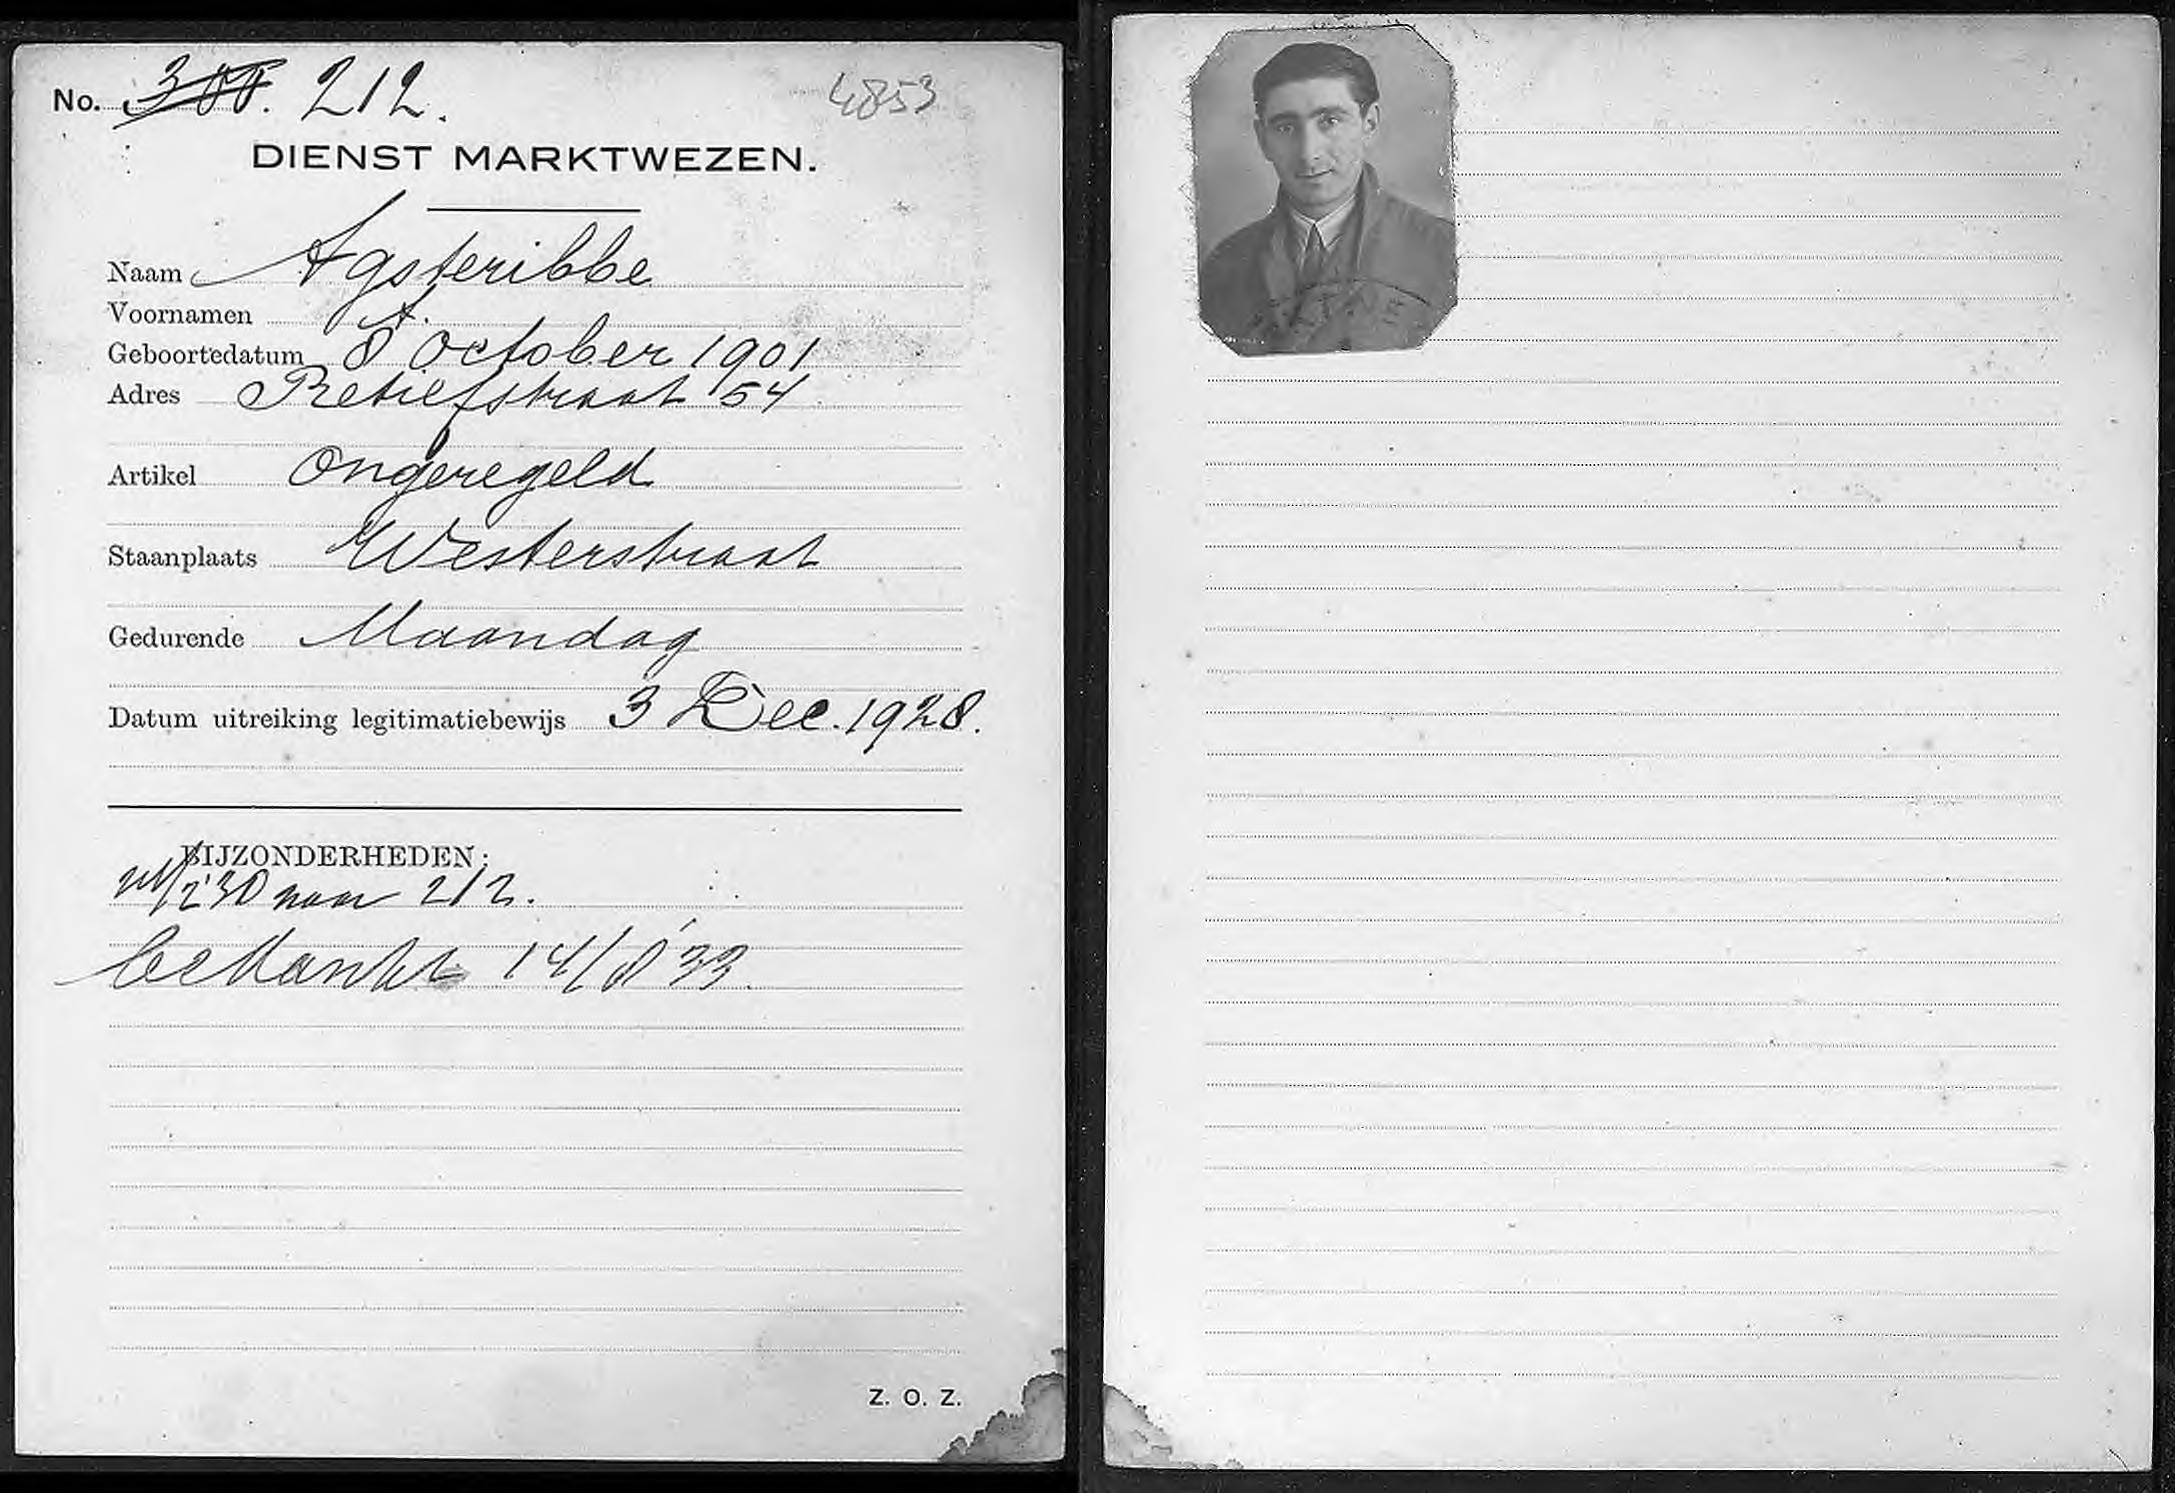 No. 300. 212.
4853
DIENST MARKTWEZEN.
Naam Agsteribbe
Voornamen A.
Geboortedatum 8 October 1901
Adres Retiefstraat 54
Artikel Ongeregeld
Staanplaats Westerstraat
Gedurende Maandag
Datum uitreiking legitimatiebewijs 3 Dec. 1928.
BIJZONDERHEDEN:
2'30 naar 212.
bedankt 14/8'33.
Z. O. Z.